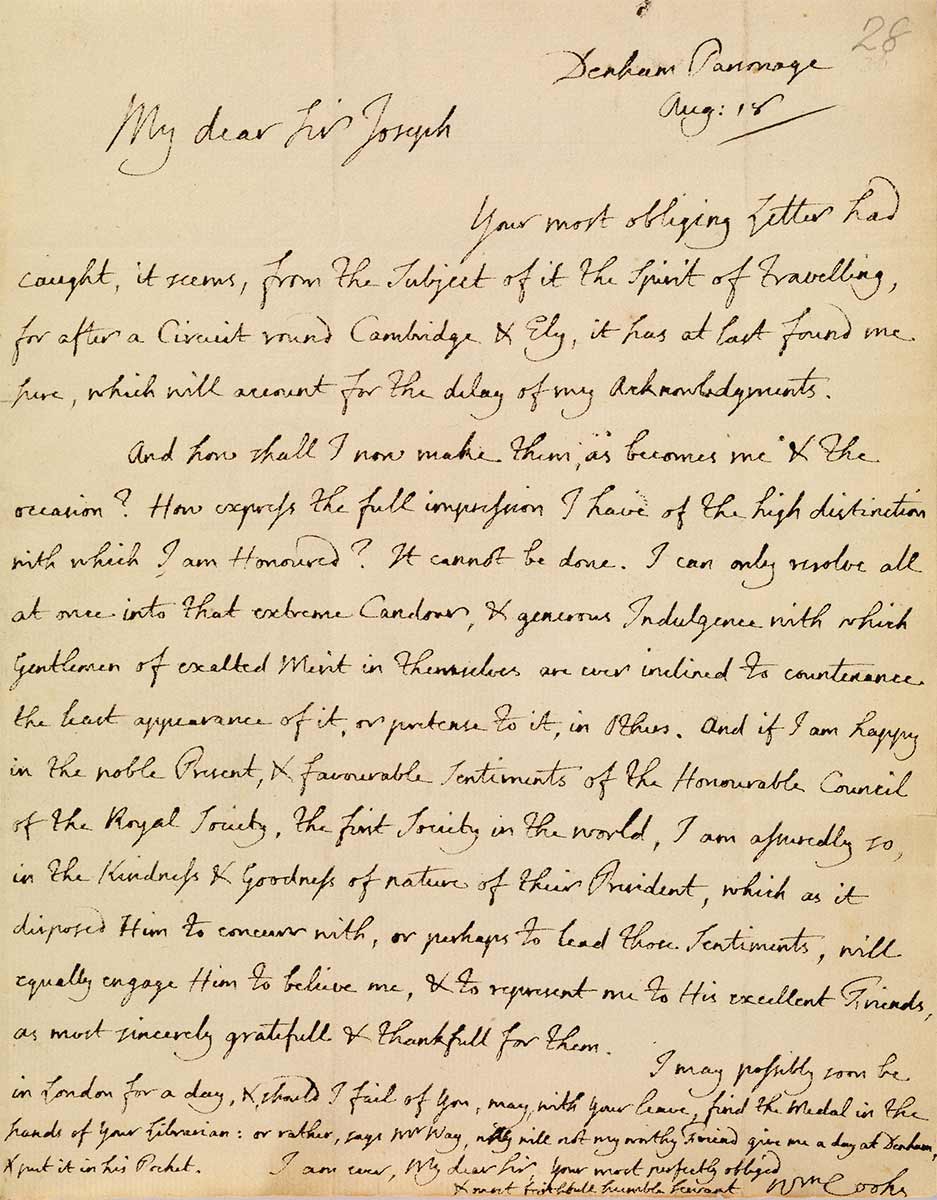 28
Denham Parsonage
Aug: 18
My dear Sir Joseph
Your most obliging Letter had
caught, it seems, from the Subject of it the Spirit of travelling,
for after a Circuit round Cambridge & Ely, it has at last found me
here, which will account for the delay of my Acknowledgments.
And how shall I now make them, as becomes me & the
occasion? How express the full impression I have of the high distinction
with which I am Honoured? It cannot be done. I can only resolve all
at once into that extreme Candour, & generous Indulgence with which
Gentlemen of exalted Merit in themselves are ever inclined to countenance
the least appearance of it, or pretense to it, in Others. And if I am happy
in the noble Present, & favourable Sentiments of the Honourable Council
of the Royal Society, the first Society in the world, I am assuredly so,
in the Kindness & Goodness of nature of their President, which as it
disposed Him to concurr with, or perhaps to lead those Sentiments, will
equally engage Him to believe me, & to represent me to His excellent Friends,
as most sincerely gratefull & thankfull for them.
I may possibly soon be
in London for a day, & should I fail of You, may, with Your leave, find the Medal in the
hands of Your Librarian: or rather, says Mr Way, why will not my worthy Friend give me a day at Denham,
& put it in his Pocket.
I am ever, My dear Sir Your most perfectly obliged
& most faithfull humble Servant
Wm Cooke